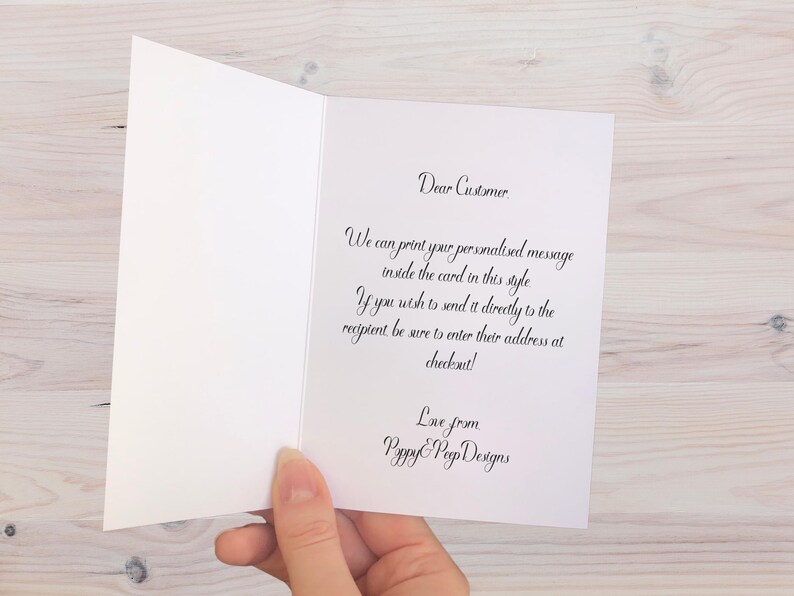 Dear Customer,
We can print your personalised message
inside the card in this style.
If you wish to send it directly to the
recipient, be sure to enter their address at
checkout!
Love from,
Poppy&PeepDesigns